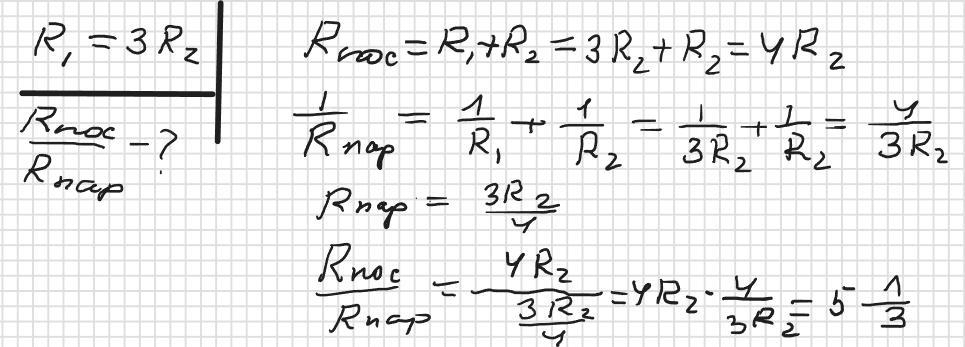 R₁ = 3R₂
Rпос/Rпар - ?
Rпос = R₁ + R₂ = 3R₂ + R₂ = 4R₂
1/Rпар = 1/R₁ + 1/R₂ = 1/3R₂ + 1/R₂ = 4/3R₂
Rпар = 3R₂/4
Rпос/Rпар = 4R₂/(3R₂/4) = 4R₂ · 4/3R₂ = 5 1/3